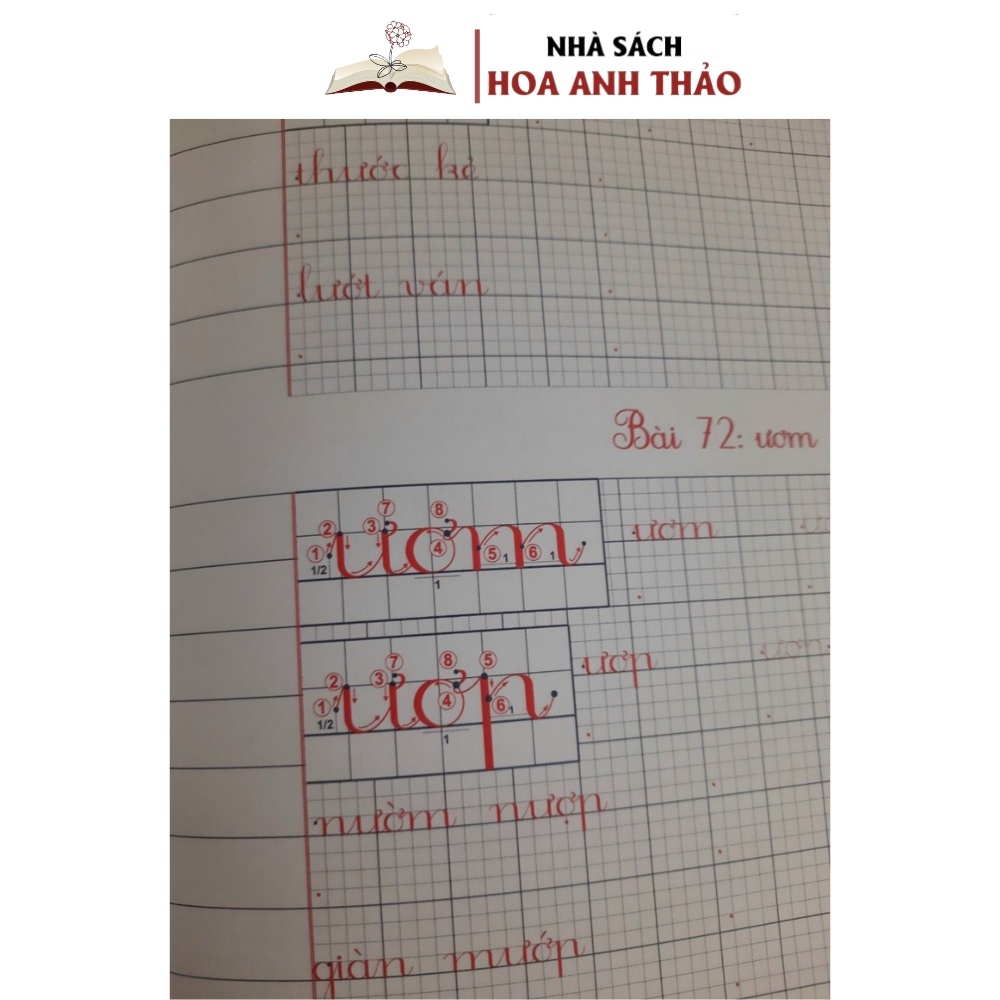 NHÀ SÁCH
HOA ANH THẢO
thước kẻ
lướt ván
Bài 72: ươm
2 7 3 8 ươm ươm
1 4 5 1 6 1
1/2
1
2 7 3 8 5 ươp ươp
1 4 6 1
1/2
1
nườm nượp
giàn mướp